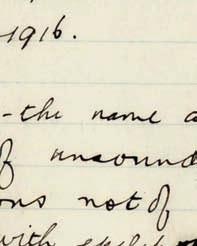 1916.
-the name a
of unsound
ons not of
with